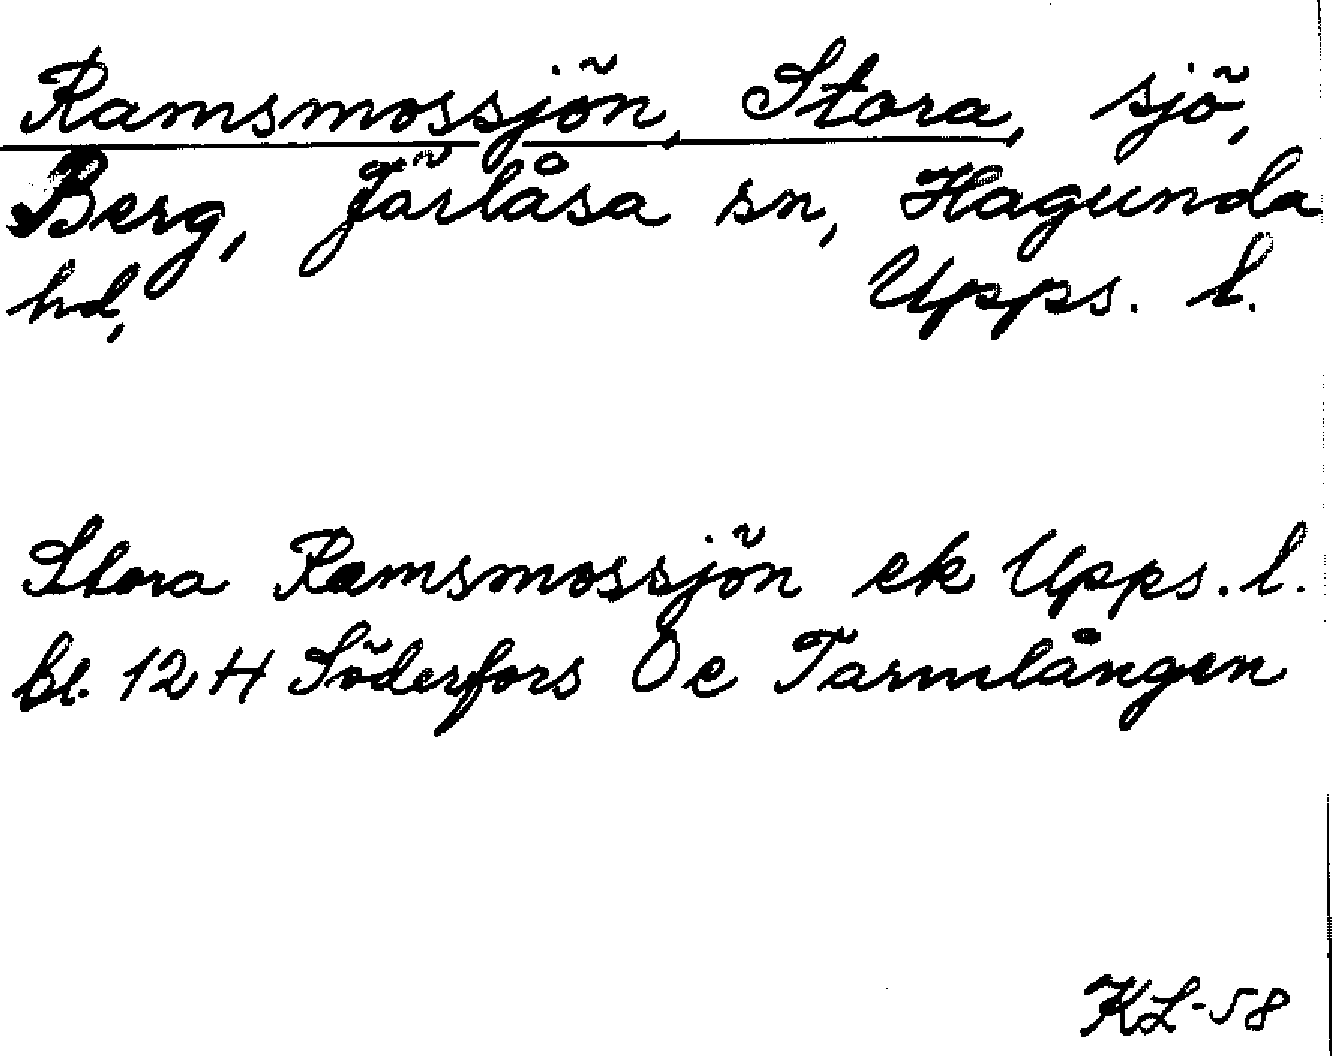 Ramsmossjön, Stora, sjö,
Berg, Järlåsa sn, Hagunda
hd, Upps. l.
Stora Ramsmossjön ek Upps. l.
bl. 12 H Söderfors Oe Tarmlången
KL-58